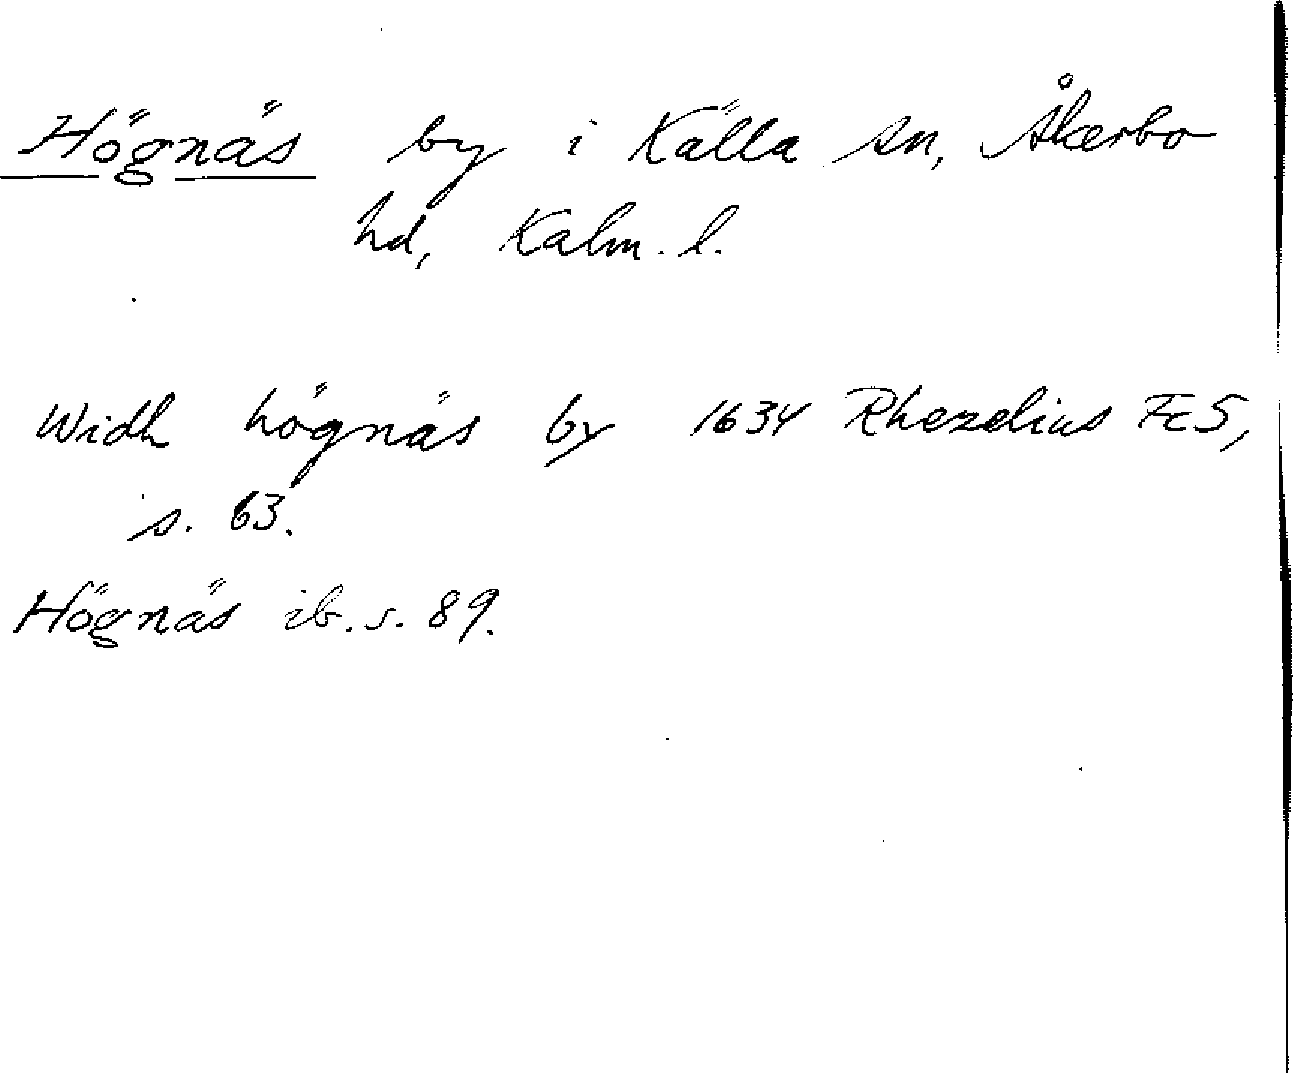 Högnäs by i Källa sn, Åkerbo
hd, Kalm. l.
Widh högnäs by 1634 Rhezelius Fc5,
s. 63.
Högnäs ib. s. 89.